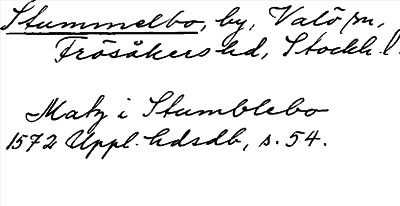 Stummelbo, by, Valö sn,
Frösåkers hd, Stockh. l.
Matz i Stumblebo
1572 Uppl. hdsdb, s. 54.